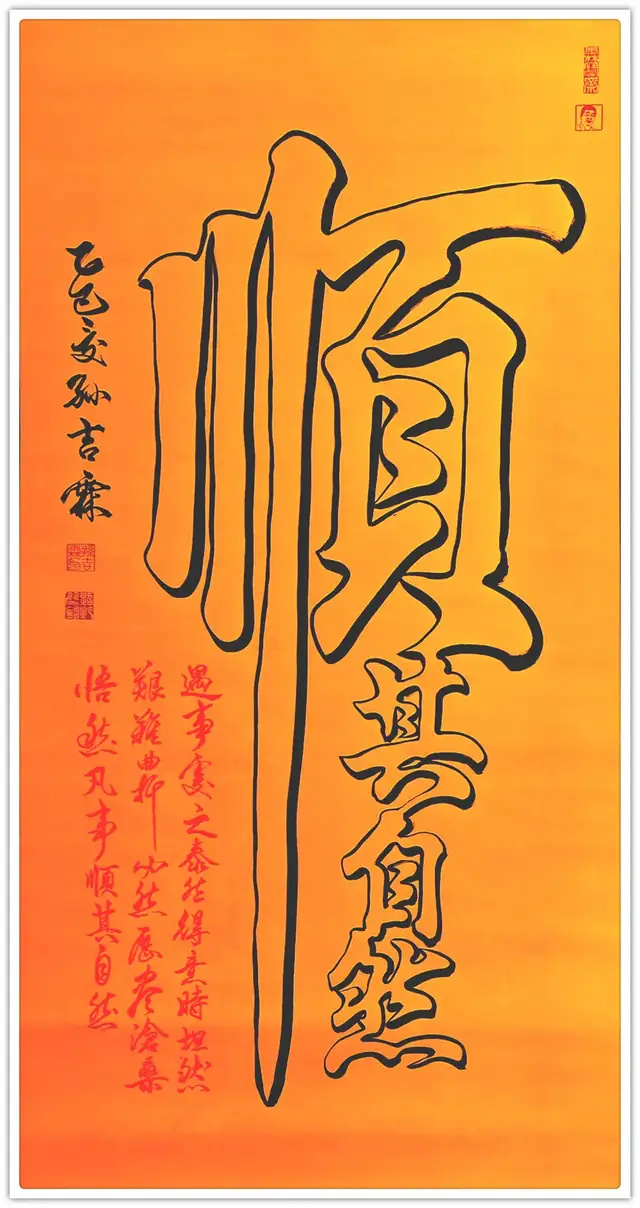 順
其自然
遇事處之泰然得意時坦然
艱難曲折必然歷盡滄桑
悟然凡事順其自然
乙巳夏孫吉霖